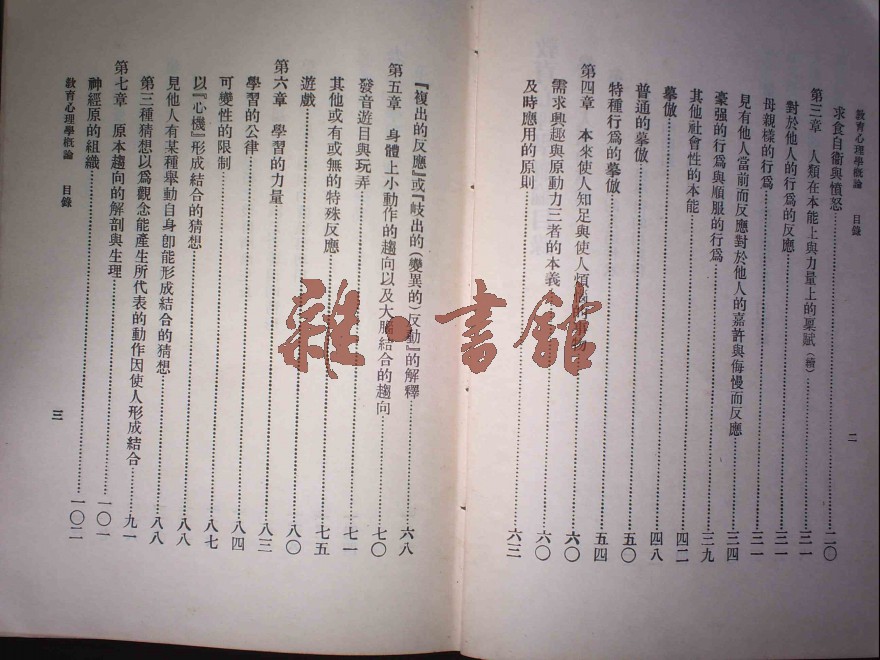 教育心理學概論　目錄　二
求食自衞與憤怒……二〇
第三章　人類在本能上與力量上的稟賦（續）……三一
對於他人的行爲的反應……三一
母親樣的行爲……三一
見有他人當前而反應對於他人的嘉許與侮慢而反應……三四
豪强的行爲與順服的行爲……三九
其他社會性的本能……四二
摹倣……四八
普通的摹倣……五〇
特種行爲的摹倣……五四
第四章　本來使人知足與使人煩　的事物……六〇
需求興趣與原動力三者的本義……六〇
及時應用的原則……六三
『複出的反應』或『歧出的（變異的）反動』的解釋……六八
第五章　身體上小動作的趨向以及大腦結合的趨向……七〇
發音遊目與玩弄……七一
其他或有或無的特殊反應……七五
遊戲……八〇
第六章　學習的力量……八三
學習的公律……八四
可變性的限制……八七
以『心機』形成結合的猜想……八八
見他人有某種舉動自身卽能形成結合的猜想……八八
第三種猜想以爲觀念能產生所代表的動作因使人形成結合……九一
第七章　原本趨向的解剖與生理……一〇一
神經原的組織……一〇二
教育心理學概論　目錄　三
雜·書館